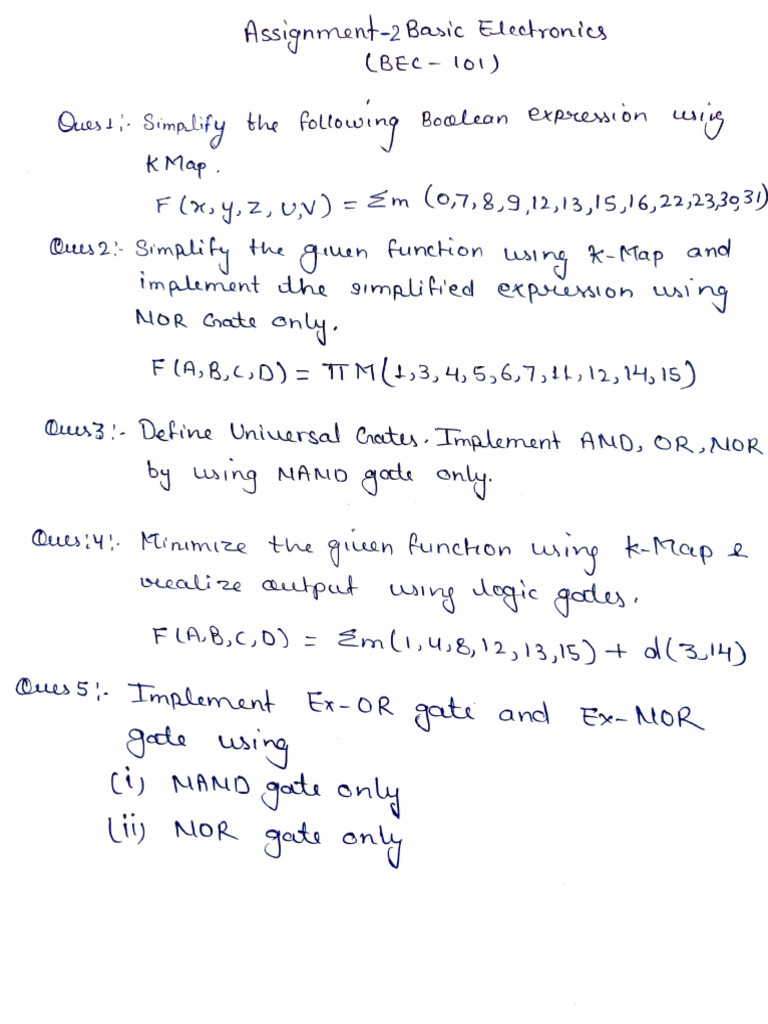 Assignment-2 Basic Electronics
(BEC - 101)
Ques 1:- Simplify the following Boolean expression using
K Map.
F (x, y, z, U, V) = Σm (0,7,8,9,12,13,15,16,22,23,30,31)
Ques 2:- Simplify the given function using K-Map and
implement the simplified expression using
NOR Gate only.
F (A, B, C, D) = πM (1,3,4,5,6,7,11,12,14,15)
Ques 3:- Define Universal Gates. Implement AND, OR, NOR
by using NAND gate only.
Ques:4:- Minimize the given function using k-Map &
realize output using logic gates.
F (A, B, C, D) = Σm (1,4,8,12,13,15) + d (3,14)
Ques 5:- Implement Ex-OR gate and Ex-NOR
gate using
(i) NAND gate only
(ii) NOR gate only